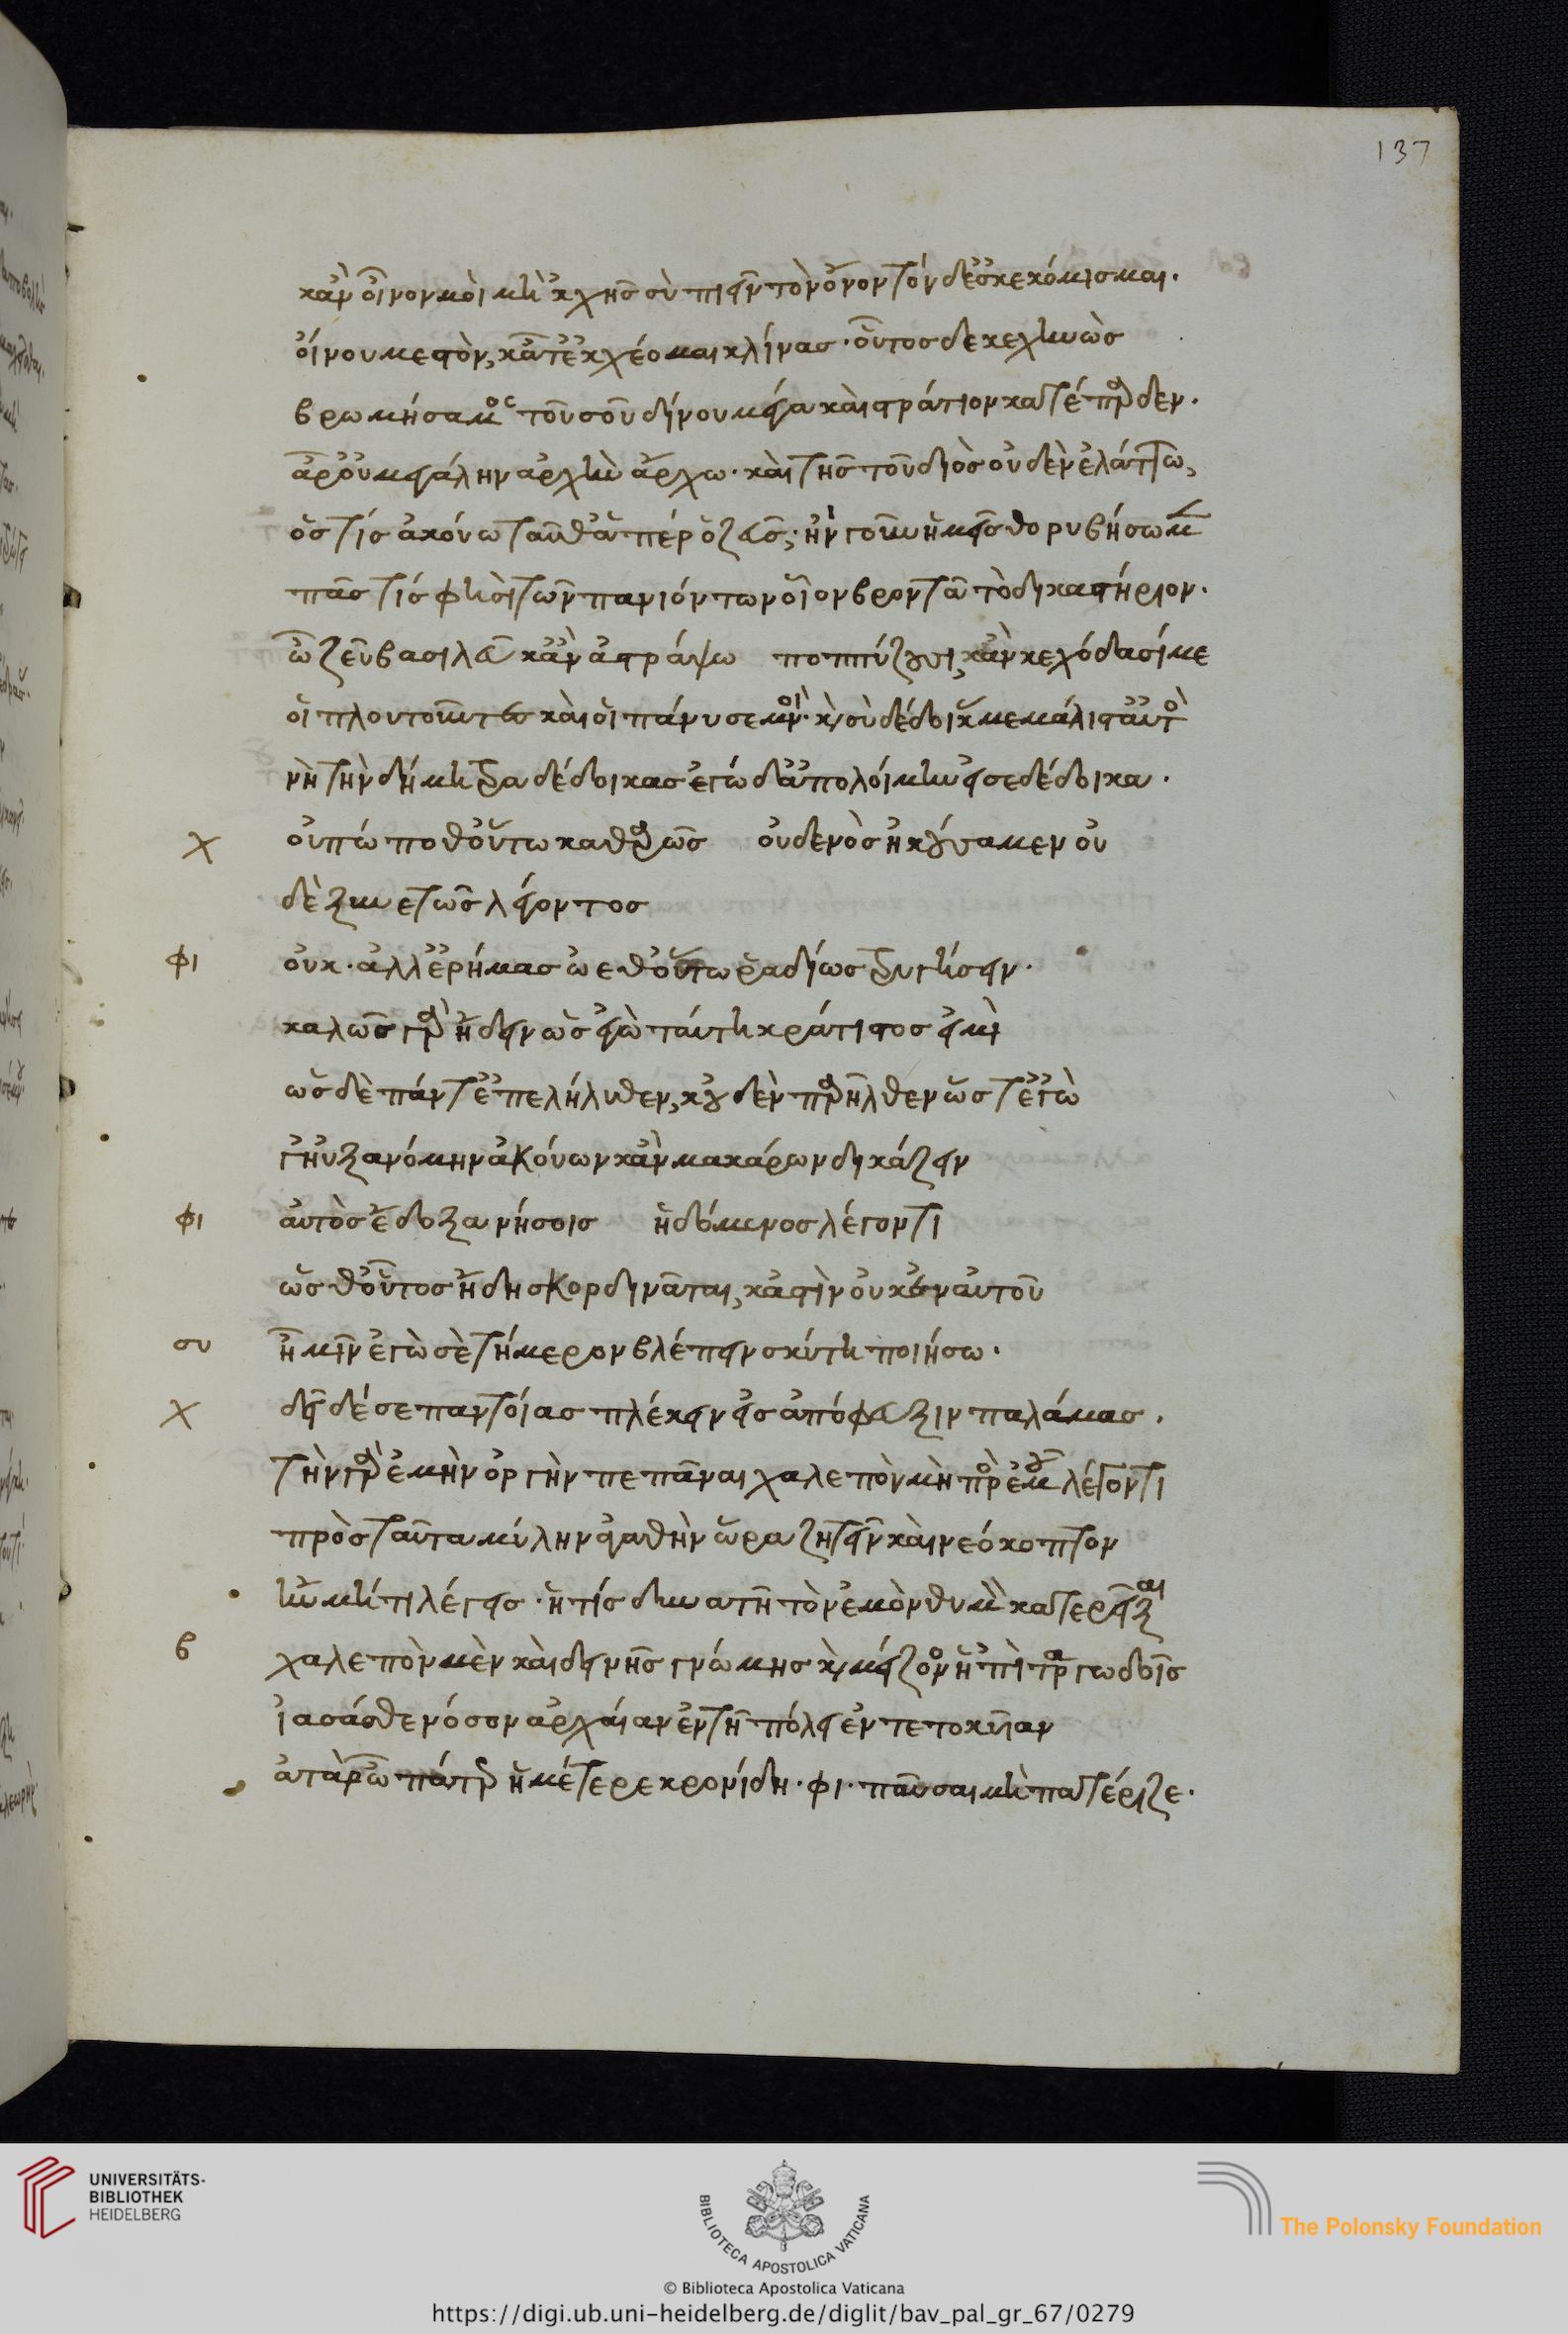 137
κἂν οἶνόν μοι μὴ ἐγχῇς σὺ πιεῖν τὸν ὄνον τόνδ' ἐσκεκόμισμαι.
οἴνου μεστόν, κᾆτ' ἐγχέομαι κλίνας· οὗτος δὲ κεχηνὼς
βρωμησάμενος τοῦ σοῦ δίνου μέγα καὶ στράτιον κατέπαρδεν.
ἆρ' οὐ μεγάλην ἀρχὴν ἄρχω· καὶ τῆς τοῦ διὸς οὐδὲν ἐλάττω,
ὅστις ἀκούω ταῦθ' ἅπερ ὁ ζεύς; ἢν γοῦν ἡμεῖς θορυβήσωμεν
πᾶς τίς φησι τῶν παριόντων οἷον βροντᾷ τὸ δικαστήριον.
ὦ ζεῦ βασιλεῦ κἂν ἀστράψω ποππύζουσι, κἂν κεχόδασί με
οἱ πλουτοῦντες καὶ οἱ πάνυ σεμνοί· καὶ σὺ δέδοικάς με μάλιστ' αὐτὸς
νὴ τὴν δήμητρα δέδοικας ἐγὼ δ' ἀπολοίμην εἴ σε δέδοικα.
χ οὐπώποθ' οὕτω καθαρῶς οὐδενὸς ἠκούσαμεν οὐ
δὲ ξυνετῶς λέγοντος
φι οὐκ· ἀλλ' ἐρήμας ὤεθ' οὕτω ῥᾳδίως τρυγήσειν.
καλῶς γὰρ ᾔδειν ὡς ἐγὼ ταύτῃ κράτιστός εἰμι
ὡς δὲ πάντ' ἐπελήλυθεν, κοὐδὲν παρῆλθεν ὥστ' ἐγὼ
γ' ηὐξανόμην ἀκούων κἂν μακάρων δικάζειν
φι αὐτὸς ἔδοξα νήσοις ἡδόμενος λέγοντι
ὡς θ' οὗτος ἤδη σκορδινᾶται, κἄστιν οὐκ ἐν αὑτοῦ
συ ἦ μὴν ἐγὼ σὲ τήμερον βλέπειν σκύτη ποιήσω.
χ δεῖ δέ σε παντοίας πλέκειν εἰς ἀπόφευξιν παλάμας.
τὴν γὰρ ἐμὴν ὀργὴν πεπᾶναι χαλεπὸν μὴ πρὸς ἐμοῦ λέγοντι
πρὸς ταῦτα μύλην ἀγαθὴν ὥρα ζητεῖν καὶ νεόκοπτον
ἢν μή τι λέγῃς· ἥτις δυνατὴ τὸν ἐμὸν θυμὸν κατερεῖξαι
β χαλεπὸν μὲν καὶ δεινῆς γνώμης καὶ μείζονος ἢ 'πὶ τρυγῳδοῖς
ἰάσασθαι νόσον ἀρχαίαν ἐν τῇ πόλει ἐντετοκυῖαν
ἀτὰρ ὦ πάτερ ἡμέτερε κρονίδη· φι· παῦσαι μὴ πατέριζε.
UNIVERSITÄTS-
BIBLIOTHEK
HEIDELBERG
BIBLIOTECA APOSTOLICA VATICANA
The Polonsky Foundation
© Biblioteca Apostolica Vaticana
https://digi.ub.uni-heidelberg.de/diglit/bav_pal_gr_67/0279